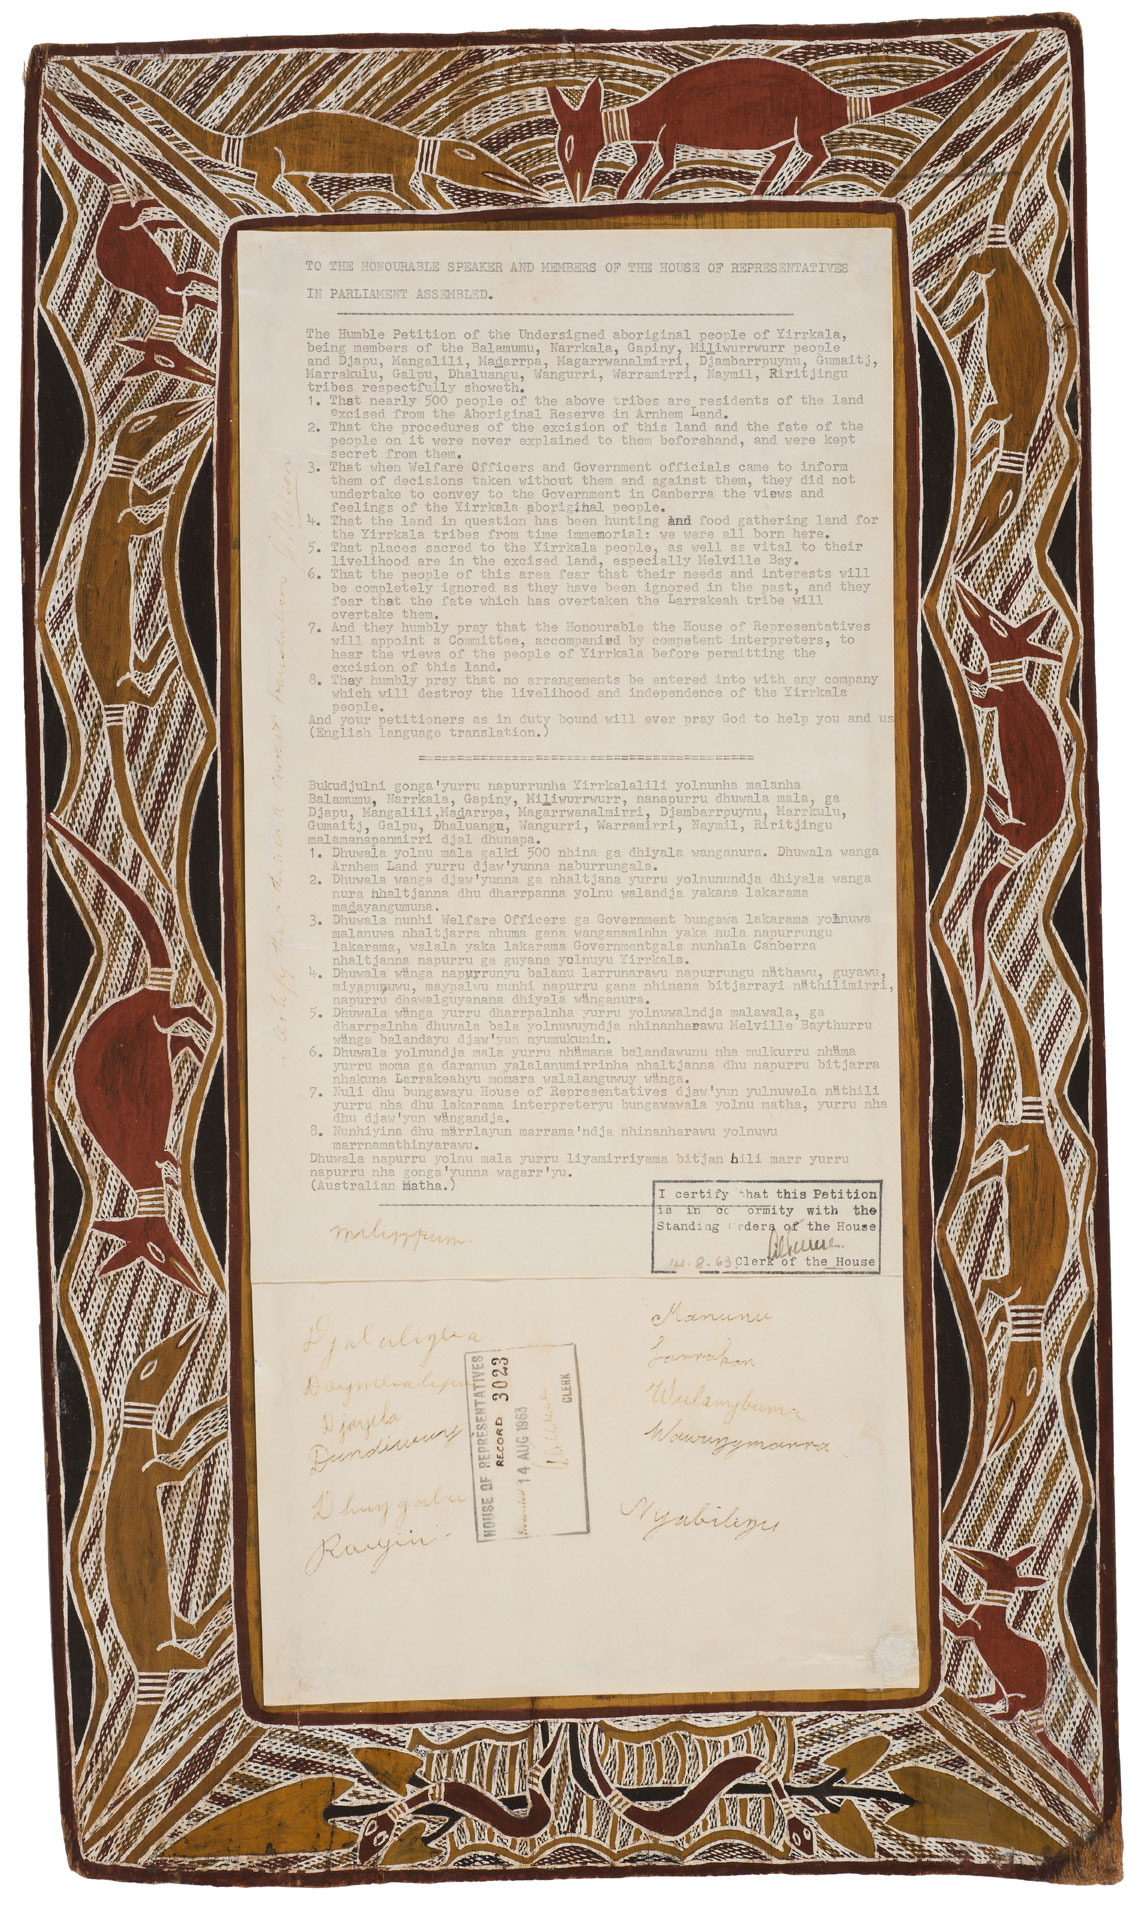 TO THE HONOURABLE SPEAKER AND MEMBERS OF THE HOUSE OF REPRESENTATIVES
IN PARLIAMENT ASSEMBLED.
The Humble Petition of the Undersigned aboriginal people of Yirrkala,
being members of the Balamumu, Narrkala, Gapiny, Miliwurrwurr people
and Djapu, Mangalili, Madarrpa, Magarrwanalmirri, Djambarrpuynu, Gumaitj,
Marrakulu, Galpu, Dhaluangu, Wangurri, Warramirri, Naymil, Riritjingu
tribes respectfully showeth.
1. That nearly 500 people of the above tribes are residents of the land
excised from the Aboriginal Reserve in Arnhem Land.
2. That the procedures of the excision of this land and the fate of the
people on it were never explained to them beforehand, and were kept
secret from them.
3. That when Welfare Officers and Government officials came to inform
them of decisions taken without them and against them, they did not
undertake to convey to the Government in Canberra the views and
feelings of the Yirrkala aboriginal people.
4. That the land in question has been hunting and food gathering land for
the Yirrkala tribes from time immemorial: we were all born here.
5. That places sacred to the Yirrkala people, as well as vital to their
livelihood are in the excised land, especially Melville Bay.
6. That the people of this area fear that their needs and interests will
be completely ignored as they have been ignored in the past, and they
fear that the fate which has overtaken the Larrakeah tribe will
overtake them.
7. And they humbly pray that the Honourable the House of Representatives
will appoint a Committee, accompanied by competent interpreters, to
hear the views of the people of Yirrkala before permitting the
excision of this land.
8. They humbly pray that no arrangements be entered into with any company
which will destroy the livelihood and independence of the Yirrkala
people.
And your petitioners as in duty bound will ever pray God to help you and us
(English language translation.)
Bukudjulni gonga'yurru napurrunha Yirrkalalili yolnunha malanha
Balamumu, Narrkala, Gapiny, Miliwurrwurr, nanapurru dhuwala mala, ga
Djapu, Mangalili, Madarrpa, Magarrwanalmirri, Djambarrpuynu, Marrkulu,
Gumaitj, Galpu, Dhaluangu, Wangurri, Warramirri, Naymil, Riritjingu
malamanapanmirri djal dhunapa.
1. Dhuwala yolnu mala galki 500 nhina ga dhiyala wanganura. Dhuwala wanga
Arnhem Land yurru djaw'yunna naburrungala.
2. Dhuwala wanga djaw'yunna ga nhaltjana yurru yolnunundja dhiyala wanga
nura nhaltjanna dhu dharrpanna yolnu walandja yakana lakarama
madayangumuna.
3. Dhuwala nunhi Welfare Officers ga Government bungawa lakarama yolnuwa
malanuwa nhaltjarra nhuma gana wanganaminha yaka nula napurrungu
lakarama, walala yaka lakarama Governmentgala nunhala Canberra
nhaltjanna napurru ga guyana yolnuyu Yirrkala.
4. Dhuwala wänga napurrunyu balanu larrunarawu napurrungu näthawu, guyawu,
miyapunuwu, maypalwu nunhi napurru gana nhinana bitjarrayi näthilimirri,
napurru dhawalguyanana dhiyala wänganura.
5. Dhuwala wänga yurru dharrpalnha yurru yolnuwalndja malawala, ga
dharrpalnha dhuwala bala yolnuwuyndja nhinanharawu Melville Baythurru
wänga balandayu djaw'yun nyumukunin.
6. Dhuwala yolnundja mala yurru nhämana balandawunu nha mulkurru nhäma
yurru moma ga daranun yalalanumirrinha nhaltjanna dhu napurru bitjarra
nhakuna Larrakeahyu momara walalanguwuy wänga.
7. Nuli dhu bungawayu House of Representatives djaw'yun yulnuwala näthili
yurru nha dhu lakarama interpreteryu bungawawala yolnu matha, yurru nha
dhu djaw'yun wängandja.
8. Nunhiyina dhu märrlayun marrama'ndja nhinanharawu yolnuwu
marrnamathinyarawu.
Dhuwala napurru yolnu mala yurru liyamirriyama bitjan bili marr yurru
napurru nha gonga'yunna wagarr'yu.
(Australian matha.)
I certify that this Petition
is in conformity with the
Standing Orders of the House
14.8.63 Clerk of the House
Milirrpum.
Djalalingba
Daymbalipu
Djayila
Dundiwuy
Dhuygala
Raiyin
Manunu
Larrakan
Wulanybuma
Wawunymarra
Nyabilingu
HOUSE OF REPRESENTATIVES
RECORD 3023
Presented 14 AUG 1963
CLERK